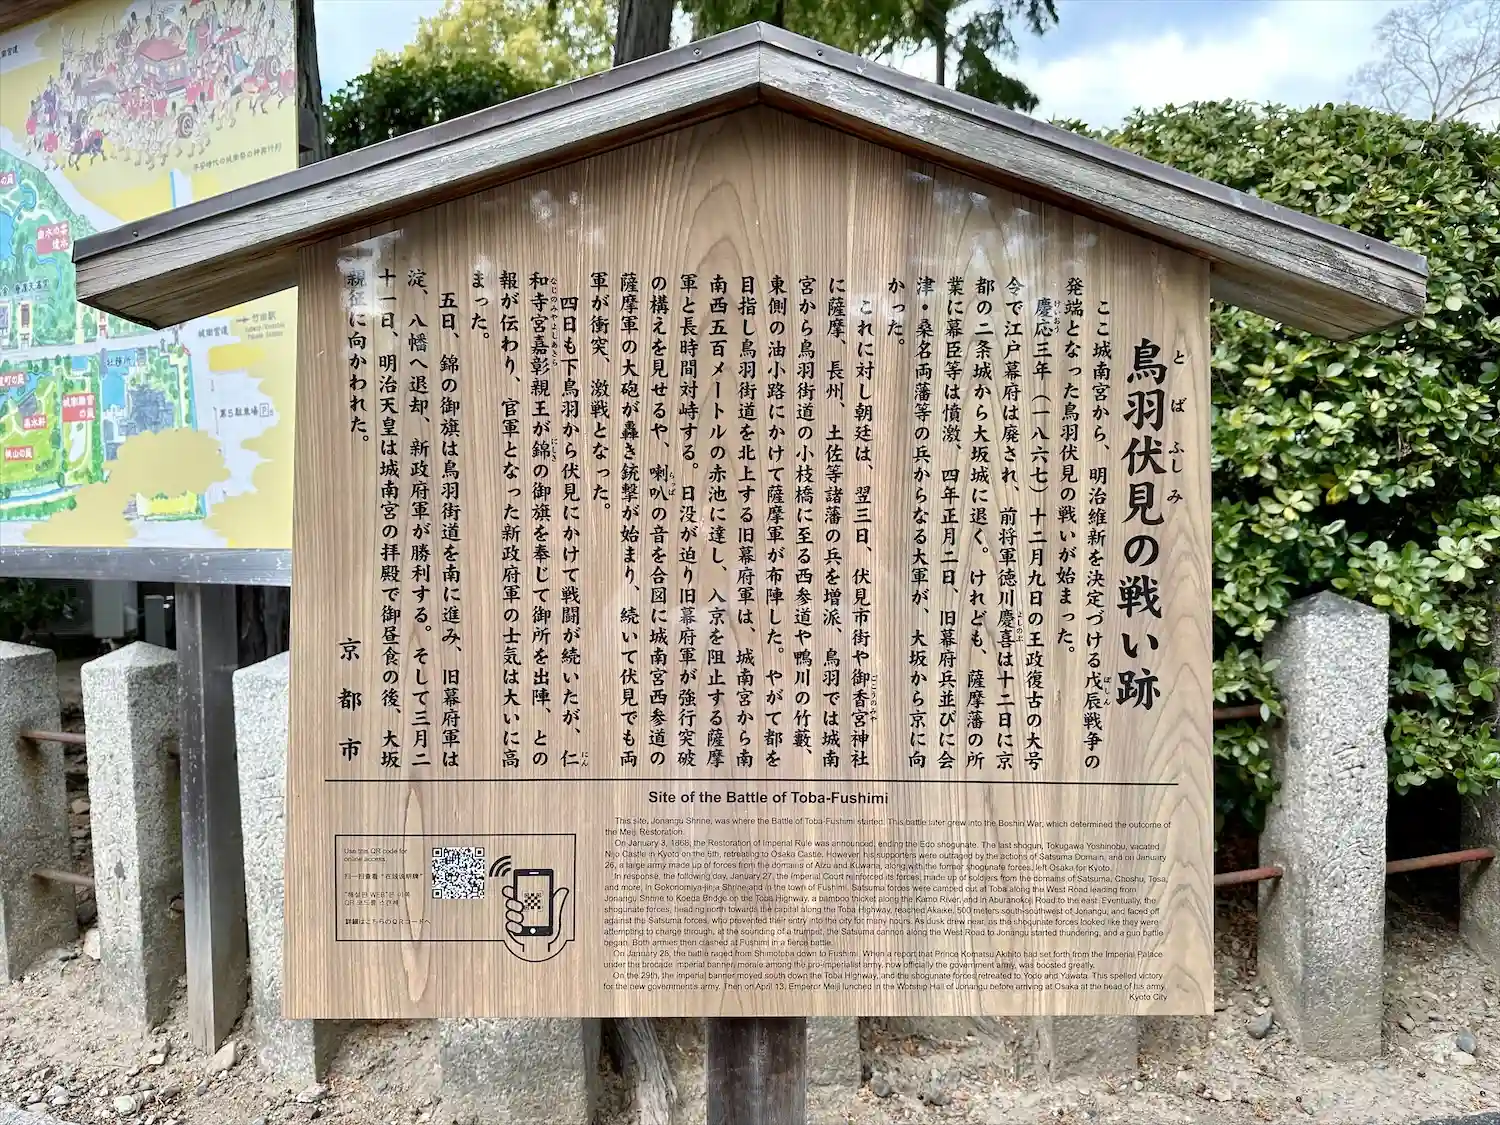 鳥羽伏見の戦い跡
とばふしみ
ここ城南宮から、明治維新を決定づける戊辰戦争の
ぼしん
発端となった鳥羽伏見の戦いが始まった。
慶応三年（一八六七）十二月九日の王政復古の大号
けいおう
令で江戸幕府は廃され、前将軍徳川慶喜は十二日に京
よしのぶ
都の二条城から大坂城に退く。けれども、薩摩藩の所
業に幕臣等は憤激、四年正月二日、旧幕府兵並びに会
津・桑名両藩等の兵からなる大軍が、大坂から京に向
かった。
これに対し朝廷は、翌三日、伏見市街や御香宮神社
ごこうのみや
に薩摩、長州、土佐等諸藩の兵を増派、鳥羽では城南
宮から鳥羽街道の小枝橋に至る西参道や鴨川の竹藪、
東側の油小路にかけて薩摩軍が布陣した。やがて都を
目指し鳥羽街道を北上する旧幕府軍は、城南宮から南
南西五百メートルの赤池に達し、入京を阻止する薩摩
軍と長時間対峙する。日没が迫り旧幕府軍が強行突破
の構えを見せるや、喇叭の音を合図に城南宮西参道の
らっぱ
薩摩軍の大砲が轟き銃撃が始まり、続いて伏見でも両
軍が衝突、激戦となった。
四日も下鳥羽から伏見にかけて戦闘が続いたが、仁
にん
和寺宮嘉彰親王が錦の御旗を奉じて御所を出陣、との
なじのみやよしあきら
にしき
報が伝わり、官軍となった新政府軍の士気は大いに高
まった。
五日、錦の御旗は鳥羽街道を南に進み、旧幕府軍は
淀、八幡へ退却、新政府軍が勝利する。そして三月二
十一日、明治天皇は城南宮の拝殿で御昼食の後、大坂
親征に向かわれた。
京都市
Site of the Battle of Toba-Fushimi
This site, Jonangu Shrine, was where the Battle of Toba-Fushimi started. This battle later grew into the Boshin War, which determined the outcome of
the Meiji Restoration.
On January 3, 1868, the Restoration of Imperial Rule was announced, ending the Edo shogunate. The last shogun, Tokugawa Yoshinobu, vacated
Nijo Castle in Kyoto on the 6th, retreating to Osaka Castle. However his supporters were outraged by the actions of Satsuma Domain, and on January
26, a large army made up of forces from the domains of Aizu and Kuwana, along with the former shogunate forces, left Osaka for Kyoto.
In response, the following day, January 27, the Imperial Court reinforced its forces, made up of soldiers from the domains of Satsuma, Choshu, Tosa,
and more, in Gokonomiya-jinja Shrine and in the town of Fushimi. Satsuma forces were camped out at Toba along the West Road leading from
Jonangu Shrine to Koeda Bridge on the Toba Highway, a bamboo thicket along the Kamo River, and in Aburanokoji Road to the east. Eventually, the
shogunate forces, heading north towards the capital along the Toba Highway, reached Akaike, 500 meters south-southwest of Jonangu, and faced off
against the Satsuma forces, who prevented their entry into the city for many hours. As dusk drew near, as the shogunate forces looked like they were
attempting to charge through, at the sounding of a trumpet, the Satsuma cannon along the West Road to Jonangu started thundering, and a gun battle
began. Both armies then clashed at Fushimi in a fierce battle.
On January 28, the battle raged from Shimotoba down to Fushimi. When a report that Prince Komatsu Akihito had set forth from the Imperial Palace
under the brocade imperial banner, morale among the pro-imperialist army, now officially the government army, was boosted greatly.
On the 29th, the imperial banner moved south down the Toba Highway, and the shogunate forces retreated to Yodo and Yawata. This spelled victory
for the new government's army. Then on April 13, Emperor Meiji lunched in the Worship Hall of Jonangu before arriving at Osaka at the head of his army.
Kyoto City
Use this QR code for
online access.
扫一扫查看"在线说明牌"
"해설판 WEB"은 이쪽
QR 코드를 스캔해
詳細はこちらのQRコードへ
平安時代の城南祭の神輿行列
城南宮道
竹田駅
第5駐車場 P
社務所